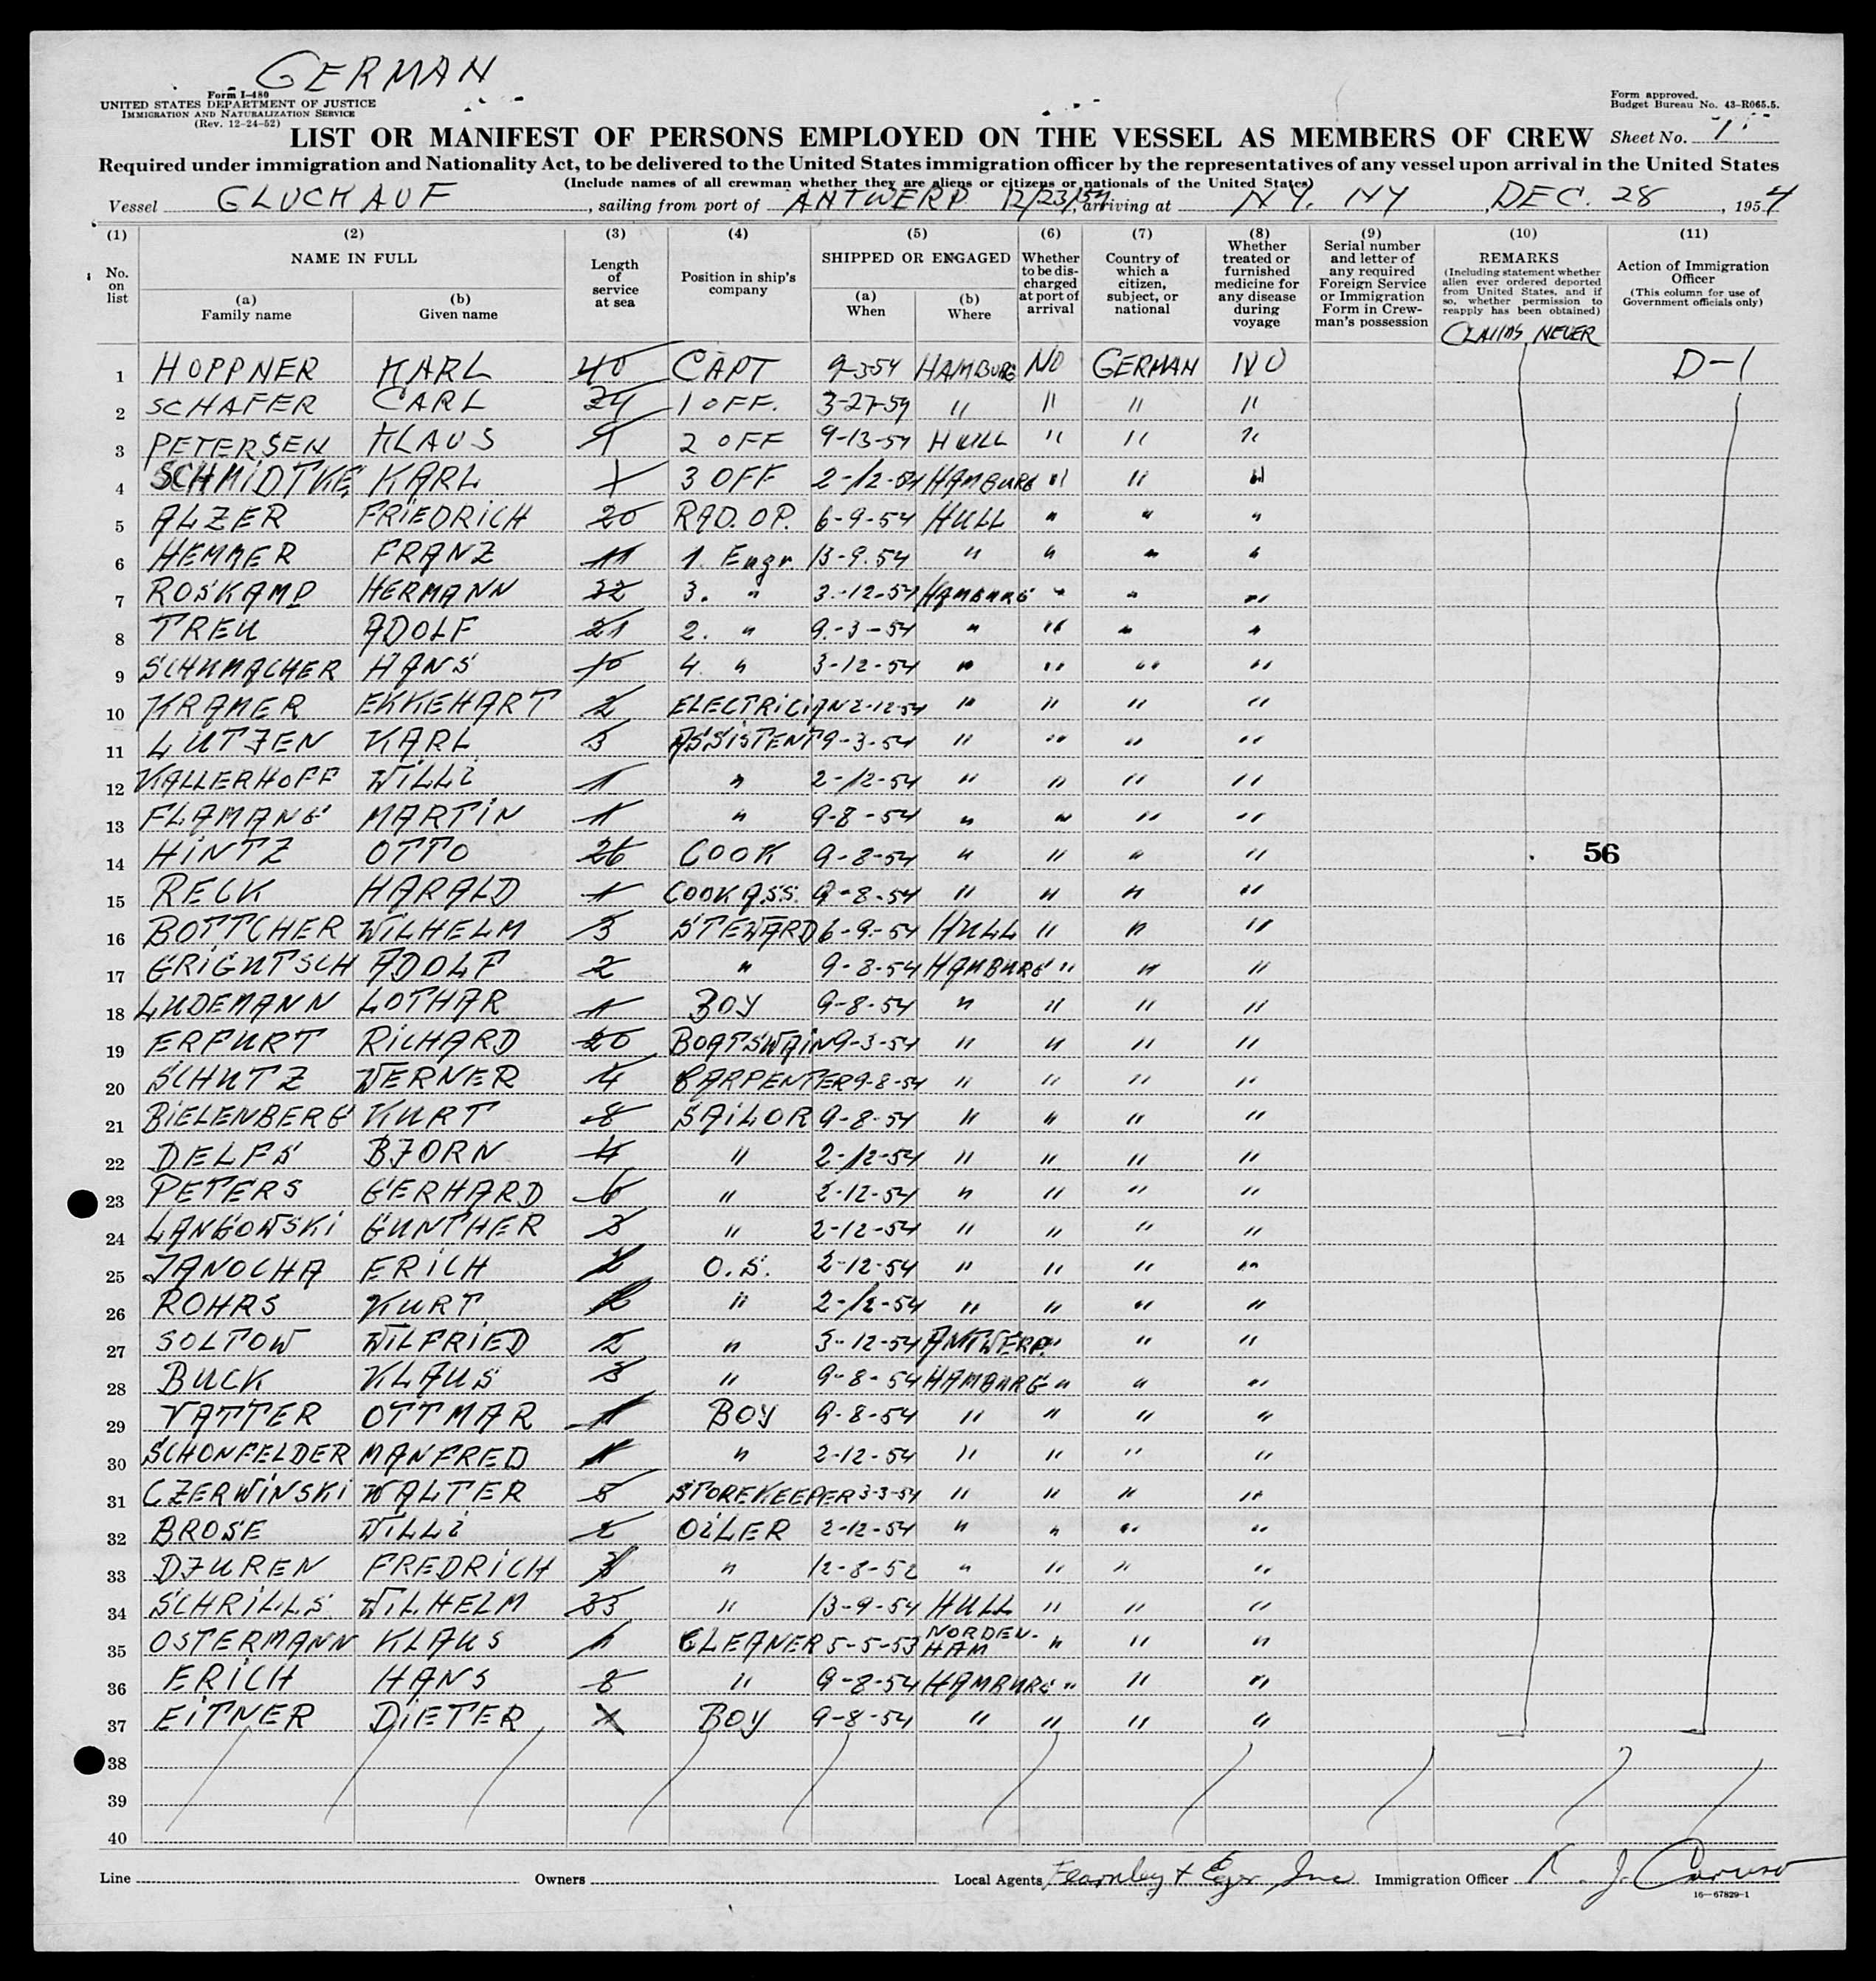 GERMAN
Form I-480
UNITED STATES DEPARTMENT OF JUSTICE
IMMIGRATION AND NATURALIZATION SERVICE
(Rev. 12-24-52)
Form approved.
Budget Bureau No. 43-R065.5.
LIST OR MANIFEST OF PERSONS EMPLOYED ON THE VESSEL AS MEMBERS OF CREW Sheet No. 1
Required under immigration and Nationality Act, to be delivered to the United States immigration officer by the representatives of any vessel upon arrival in the United States
(Include names of all crewman whether they are aliens or citizens or nationals of the United States)
Vessel GLUCKAUF, sailing from port of ANTWERP 12/23/54, arriving at N.Y. NY, DEC. 28, 1954
(1) (2) (3) (4) (5) (6) (7) (8) (9) (10) (11)
No. on list
NAME IN FULL
(a) Family name
(b) Given name
Length of service at sea
Position in ship's company
SHIPPED OR ENGAGED
(a) When
(b) Where
Whether to be discharged at port of arrival
Country of which a citizen, subject, or national
Whether treated or furnished medicine for any disease during voyage
Serial number and letter of any required Foreign Service or Immigration Form in Crewman's possession
REMARKS
(Including statement whether alien ever ordered deported from United States, and if so, whether permission to reapply has been obtained)
CLAIMS NEVER
Action of Immigration Officer
(This column for use of Government officials only)
1 HOPPNER KARL 40 CAPT 9-3-54 HAMBURG NO GERMAN NO D-1
2 SCHAFER CARL 24 1 OFF. 3-27-54 " " " "
3 PETERSEN KLAUS 9 2 OFF 9-13-54 HULL " " "
4 SCHMIDTKE KARL 1 3 OFF 2-12-54 HAMBURG " " "
5 ALZER FRIEDRICH 20 RAD. OP. 6-9-54 HULL " " "
6 HEMMER FRANZ 11 1. Engr. 13-9.54 " " " "
7 ROSKAMP HERMANN 32 3. " 3.-12-54 HAMBURG " " "
8 TREU ADOLF 21 2. " 9.-3-54 " " " "
9 SCHUMACHER HANS 10 4. " 3-12-54 " " " "
10 KRAMER EKKEHART 2 ELECTRICIAN 2-12-54 " " " "
11 LUTJEN KARL 3 ASSISTENT 9-3-54 " " " "
12 KALLERHOFF WILLI 1 " 2-12-54 " " " "
13 FLAMANG MARTIN 1 " 9-8-54 " " " "
14 HINTZ OTTO 26 COOK 9-8-54 " " " " 56
15 RECK HARALD 1 COOK ASS. 9-8-54 " " " "
16 BOTTCHER WILHELM 3 STEWARD 6-9-54 HULL " " "
17 GRIGUTSCH ADOLF 2 " 9-8-54 HAMBURG " " "
18 LUDEMANN LOTHAR 1 BOY 9-8-54 " " " "
19 ERFURT RICHARD 20 BOATSWAIN 9-3-54 " " " "
20 SCHUTZ WERNER 4 CARPENTER 9-8-54 " " " "
21 BIELENBERG KURT 8 SAILOR 9-8-54 " " " "
22 DELFS BJORN 4 " 2-12-54 " " " "
23 PETERS GERHARD 6 " 2-12-54 " " " "
24 LANGOWSKI GUNTHER 3 " 2-12-54 " " " "
25 JANOCHA ERICH 2 O.S. 2-12-54 " " " "
26 ROHRS KURT " 2-12-54 " " " "
27 SOLTOW WILFRIED 2 " 3-12-54 ANTWERP. " " "
28 BUCK KLAUS 3 " 9-8-54 HAMBURG " " "
29 VATTER OTTMAR 1 BOY 9-8-54 " " " "
30 SCHONFELDER MANFRED 1 " 2-12-54 " " " "
31 CZERWINSKI WALTER 5 STOREKEEPER 3-3-54 " " " "
32 BROSE WILLI 2 OILER 2-12-54 " " " "
33 DJUREN FREDRICH " 12-8-52 " " " "
34 SCHRILLS WILHELM 33 " 13-9-54 HULL " " "
35 OSTERMANN KLAUS 1 CLEANER 5-5-53 NORDEN-HAM " " "
36 ERICH HANS 8 " 9-8-54 HAMBURG " " "
37 EITNER DIETER 1 BOY 9-8-54 " " " "
38
39
40
Line Owners Local Agents Fearnley + Eger Inc Immigration Officer J. Caruso
16—67829-1